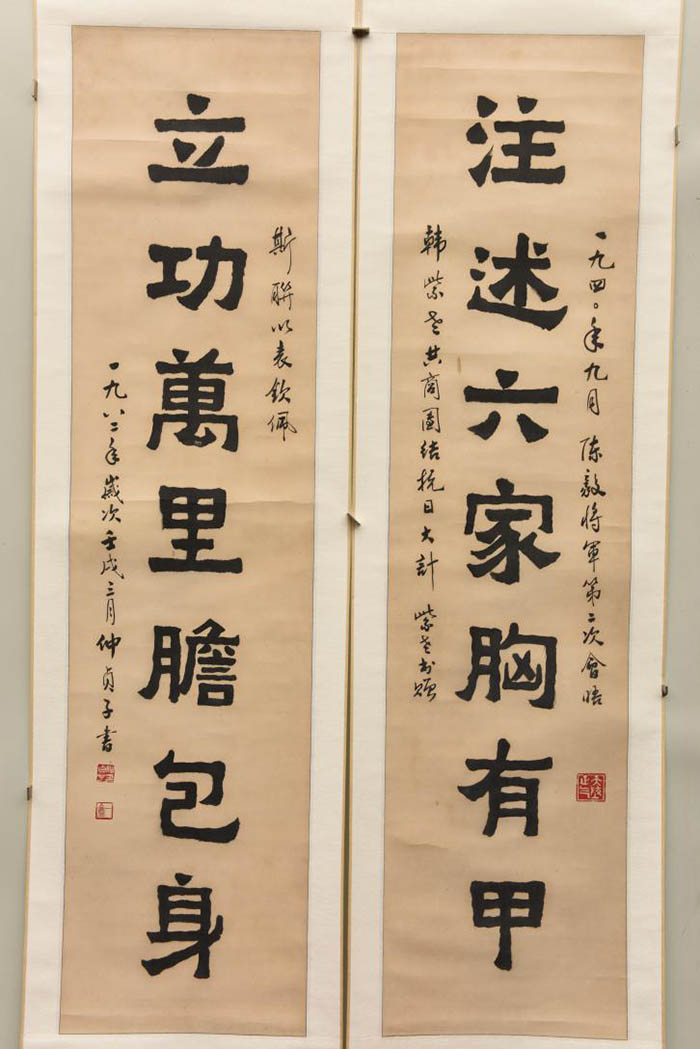 注述六家胸有甲
一九四〇年九月陈毅将军第二次會晤
韩紫老共商團结抗日大計 紫老书赠
立功萬里膽包身
斯聯以表钦佩
一九八二年歲次壬戌三月仲貞子書